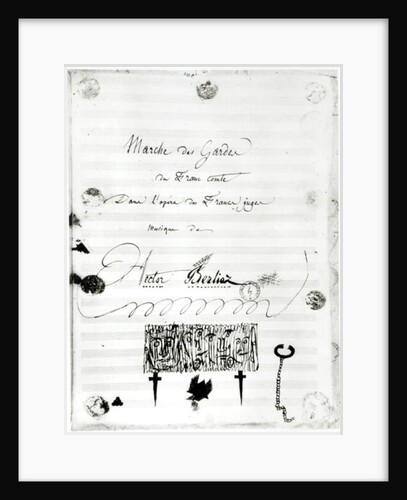 Marche des Gardes
du Franc comte
Dans l'opéra des Francs juges
Musique de
Hector Berlioz